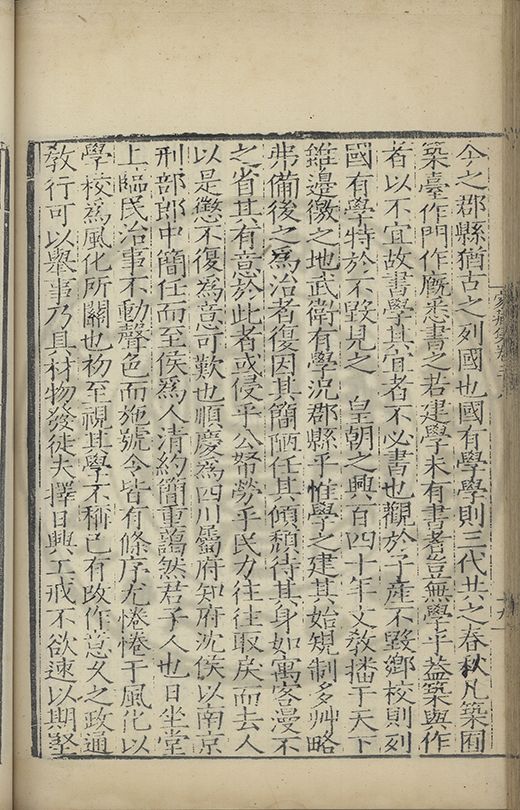 今之郡縣猶古之列國也國有學學則三代共之春秋凡築囿
築臺作門作廐悉書之若建學未有書者豈無學乎蓋築與作
者以不宜故書學其宜者不必書也觀於子產不毀鄉校則列
國有學特於不毀見之　皇朝之興百四十年文敎播于天下
雖邊徼之地武衛有學况郡縣乎惟學之建其始規制多艸略
弗備後之爲治者復因其簡陋任其傾頹待其身如寓客漫不
之省其有意於此者或侵乎公帑勞乎民力往往取戾而去人
以是懲不復爲意可歎也順慶爲四川屬府知府沈侯以南京
刑部郎中簡任而至侯爲人清約簡重藹然君子人也日坐堂
上臨民治事不動聲色而施號令皆有條序尤惓惓于風化以
學校爲風化所關也初至視其學不稱已有改作意久之政通
敎行可以舉事乃具材物發徒夫擇日興工戒不欲速以期堅